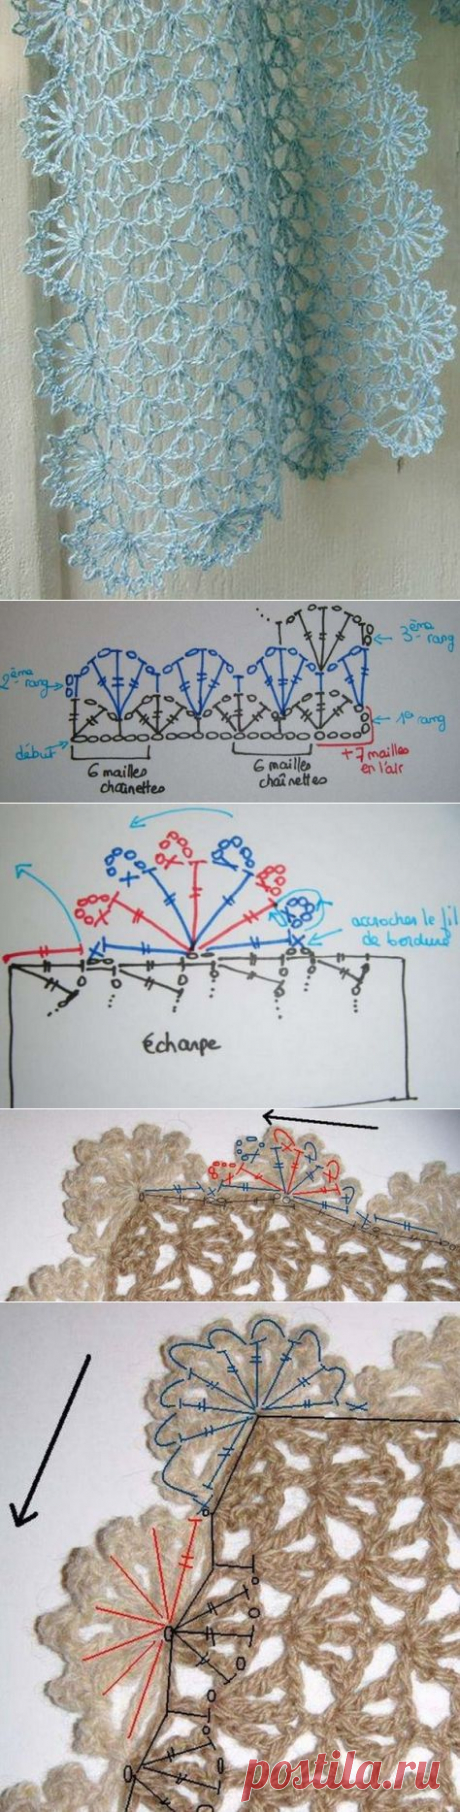 3ème
rang
2ème
rang
1er rang
début
6 mailles
chaînettes
6 mailles
chaînettes
+7 mailles
en l'air
accrocher le fil
de bordure
écharpe
postila.ru